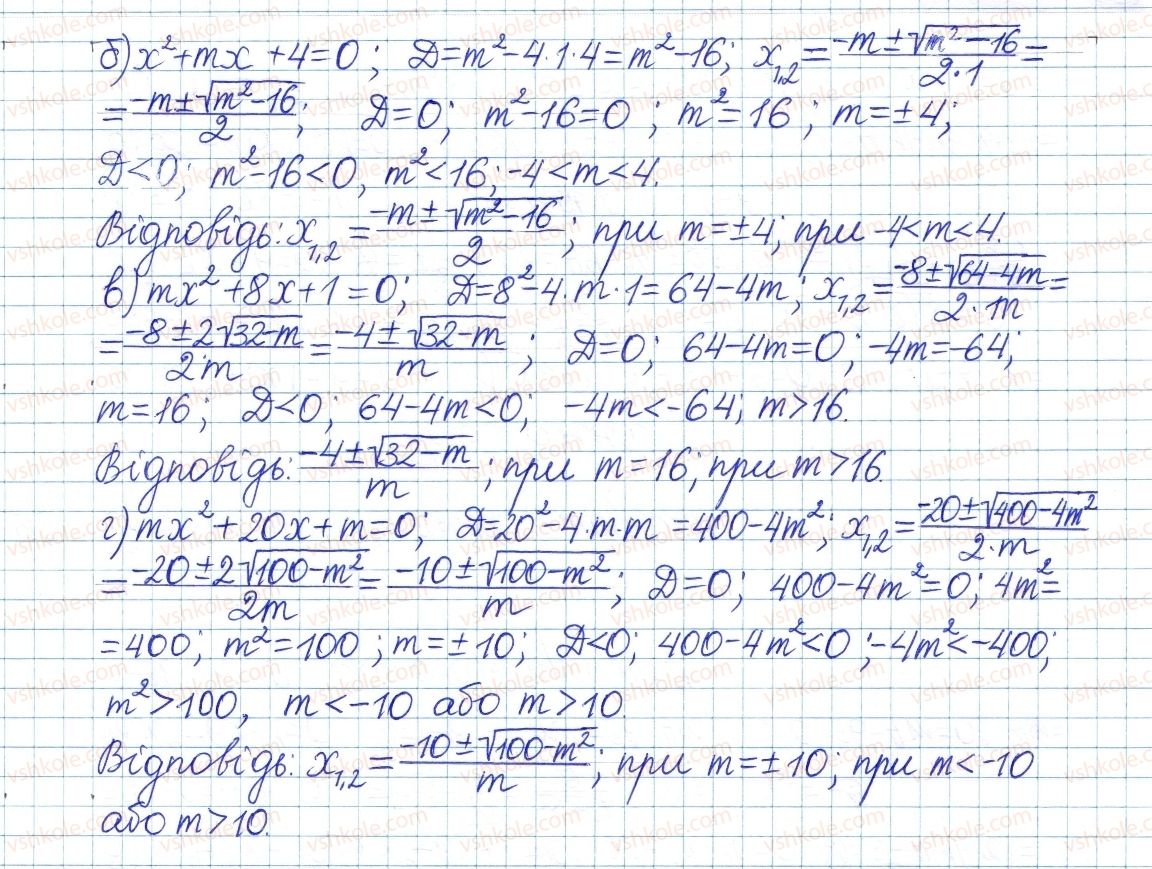 б) x²+mx+4=0; D=m²-4·1·4=m²-16; x₁,₂=(-m±√(m²-16))/(2·1)=
=(-m±√(m²-16))/2; D=0; m²-16=0; m²=16; m=±4;
D<0; m²-16<0, m²<16; -4<m<4.
Відповідь: x₁,₂=(-m±√(m²-16))/2; при m=±4; при -4<m<4.
в) mx²+8x+1=0; D=8²-4·m·1=64-4m; x₁,₂=(-8±√(64-4m))/(2·m)=
=(-8±2√(32-m))/(2·m)=(-4±√(32-m))/m; D=0; 64-4m=0; -4m=-64;
m=16; D<0; 64-4m<0; -4m<-64; m>16.
Відповідь: (-4±√(32-m))/m; при m=16; при m>16.
г) mx²+20x+m=0; D=20²-4·m·m=400-4m²; x₁,₂=(-20±√(400-4m²))/(2·m)
=(-20±2√(100-m²))/(2m)=(-10±√(100-m²))/m; D=0; 400-4m²=0; 4m²=
=400; m²=100; m=±10; D<0; 400-4m²<0; -4m²<-400;
m²>100, m<-10 або m>10.
Відповідь: x₁,₂=(-10±√(100-m²))/m; при m=±10; при m<-10
або m>10.